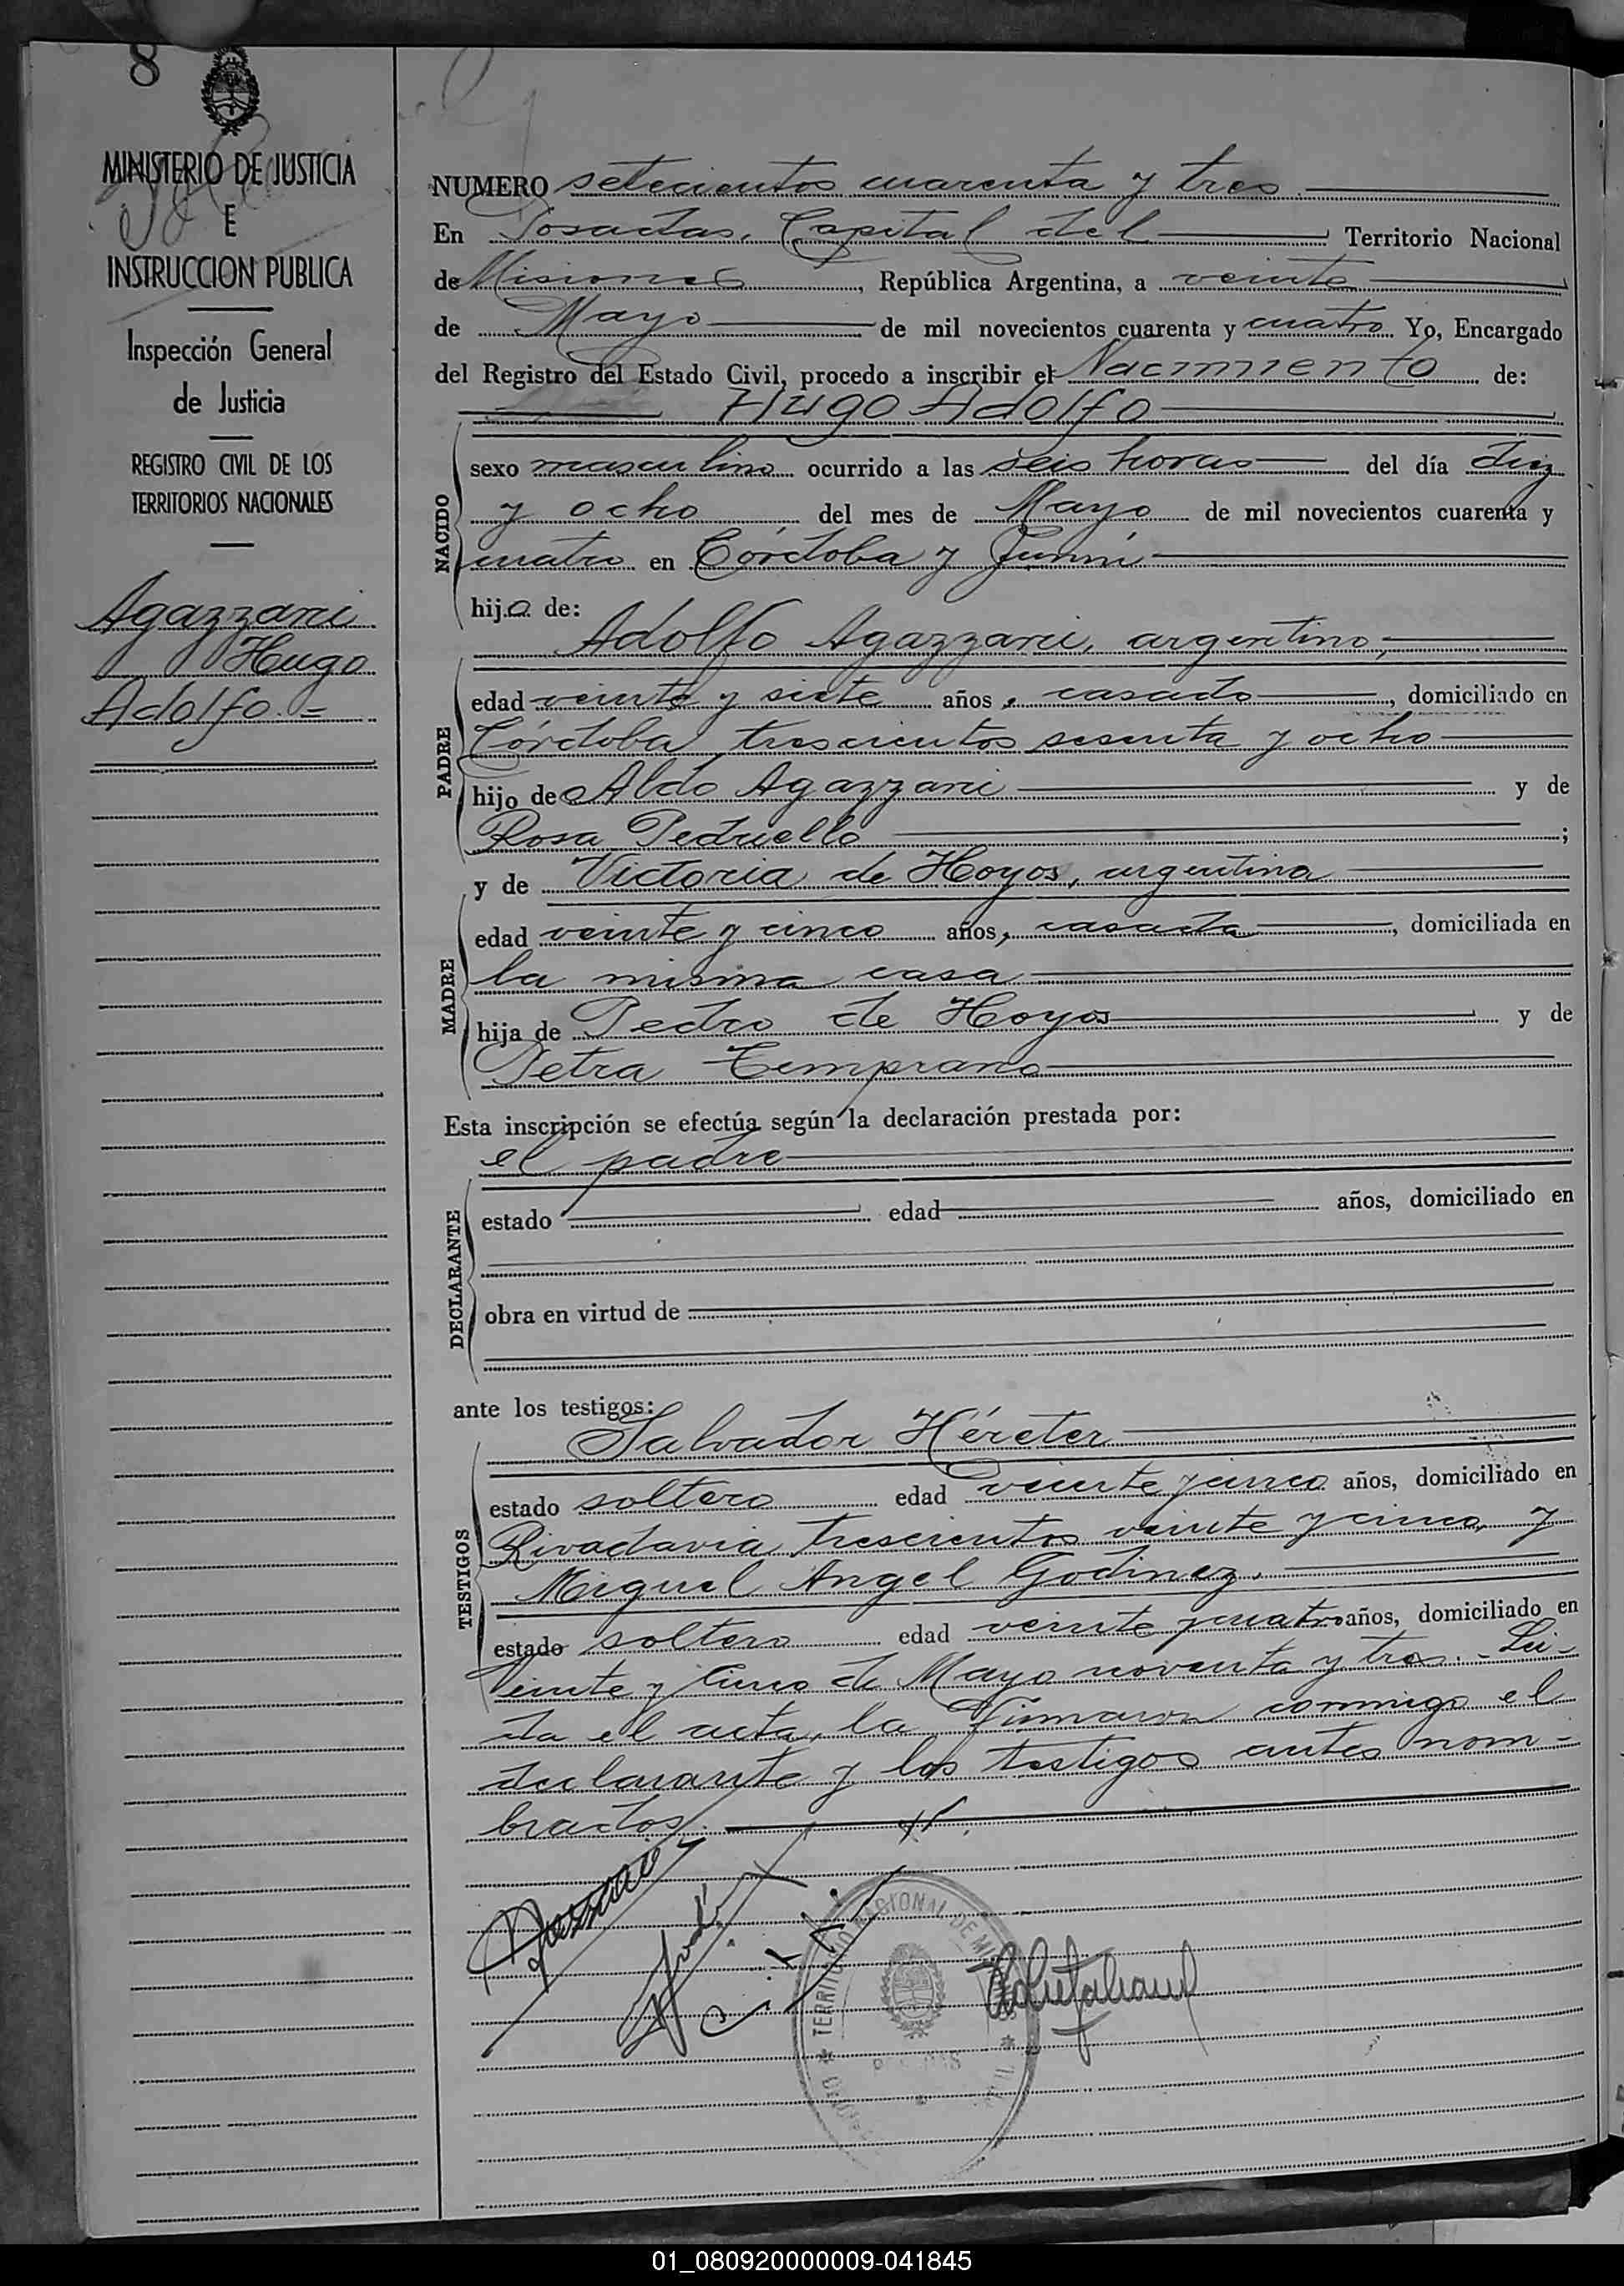 8
MINISTERIO DE JUSTICIA
E
INSTRUCCION PUBLICA
Inspección General
de Justicia
REGISTRO CIVIL DE LOS
TERRITORIOS NACIONALES
Agazzani
Hugo
Adolfo.=
NUMERO setecientos cuarenta y tres
En Posadas, Capital del Territorio Nacional
de Misiones, República Argentina, a veinte
de Mayo de mil novecientos cuarenta y cuatro Yo, Encargado
del Registro del Estado Civil, procedo a inscribir el Nacimiento de:
Hugo Adolfo
NACIDO
sexo masculino ocurrido a las seis horas del día diez
y ocho del mes de Mayo de mil novecientos cuarenta y
cuatro en Córdoba y Junín
hijo de:
Adolfo Agazzani, argentino,
PADRE
edad veinte y siete años, casado, domiciliado en
Córdoba trescientos sesenta y ocho
hijo de Aldo Agazzani y de
Rosa Pedriello;
y de Victoria de Hoyos, argentina
MADRE
edad veinte y cinco años, casada, domiciliada en
la misma casa
hija de Pedro de Hoyos y de
Petra Temprano
Esta inscripción se efectúa según la declaración prestada por:
el padre
DECLARANTE
estado edad años, domiciliado en
obra en virtud de
ante los testigos:
Salvador Héreter
TESTIGOS
estado soltero edad veinte y cinco años, domiciliado en
Rivadavia trescientos veinte y cinco y
Miguel Angel Godinez.
estado soltero edad veinte y cuatro años, domiciliado en
Veinte y Cinco de Mayo noventa y tres.- Lei-
da el acta, la firmaron conmigo el
declarante y los testigos antes nom-
brados.
TERRITORIO NACIONAL DE MI
01_080920000009-041845